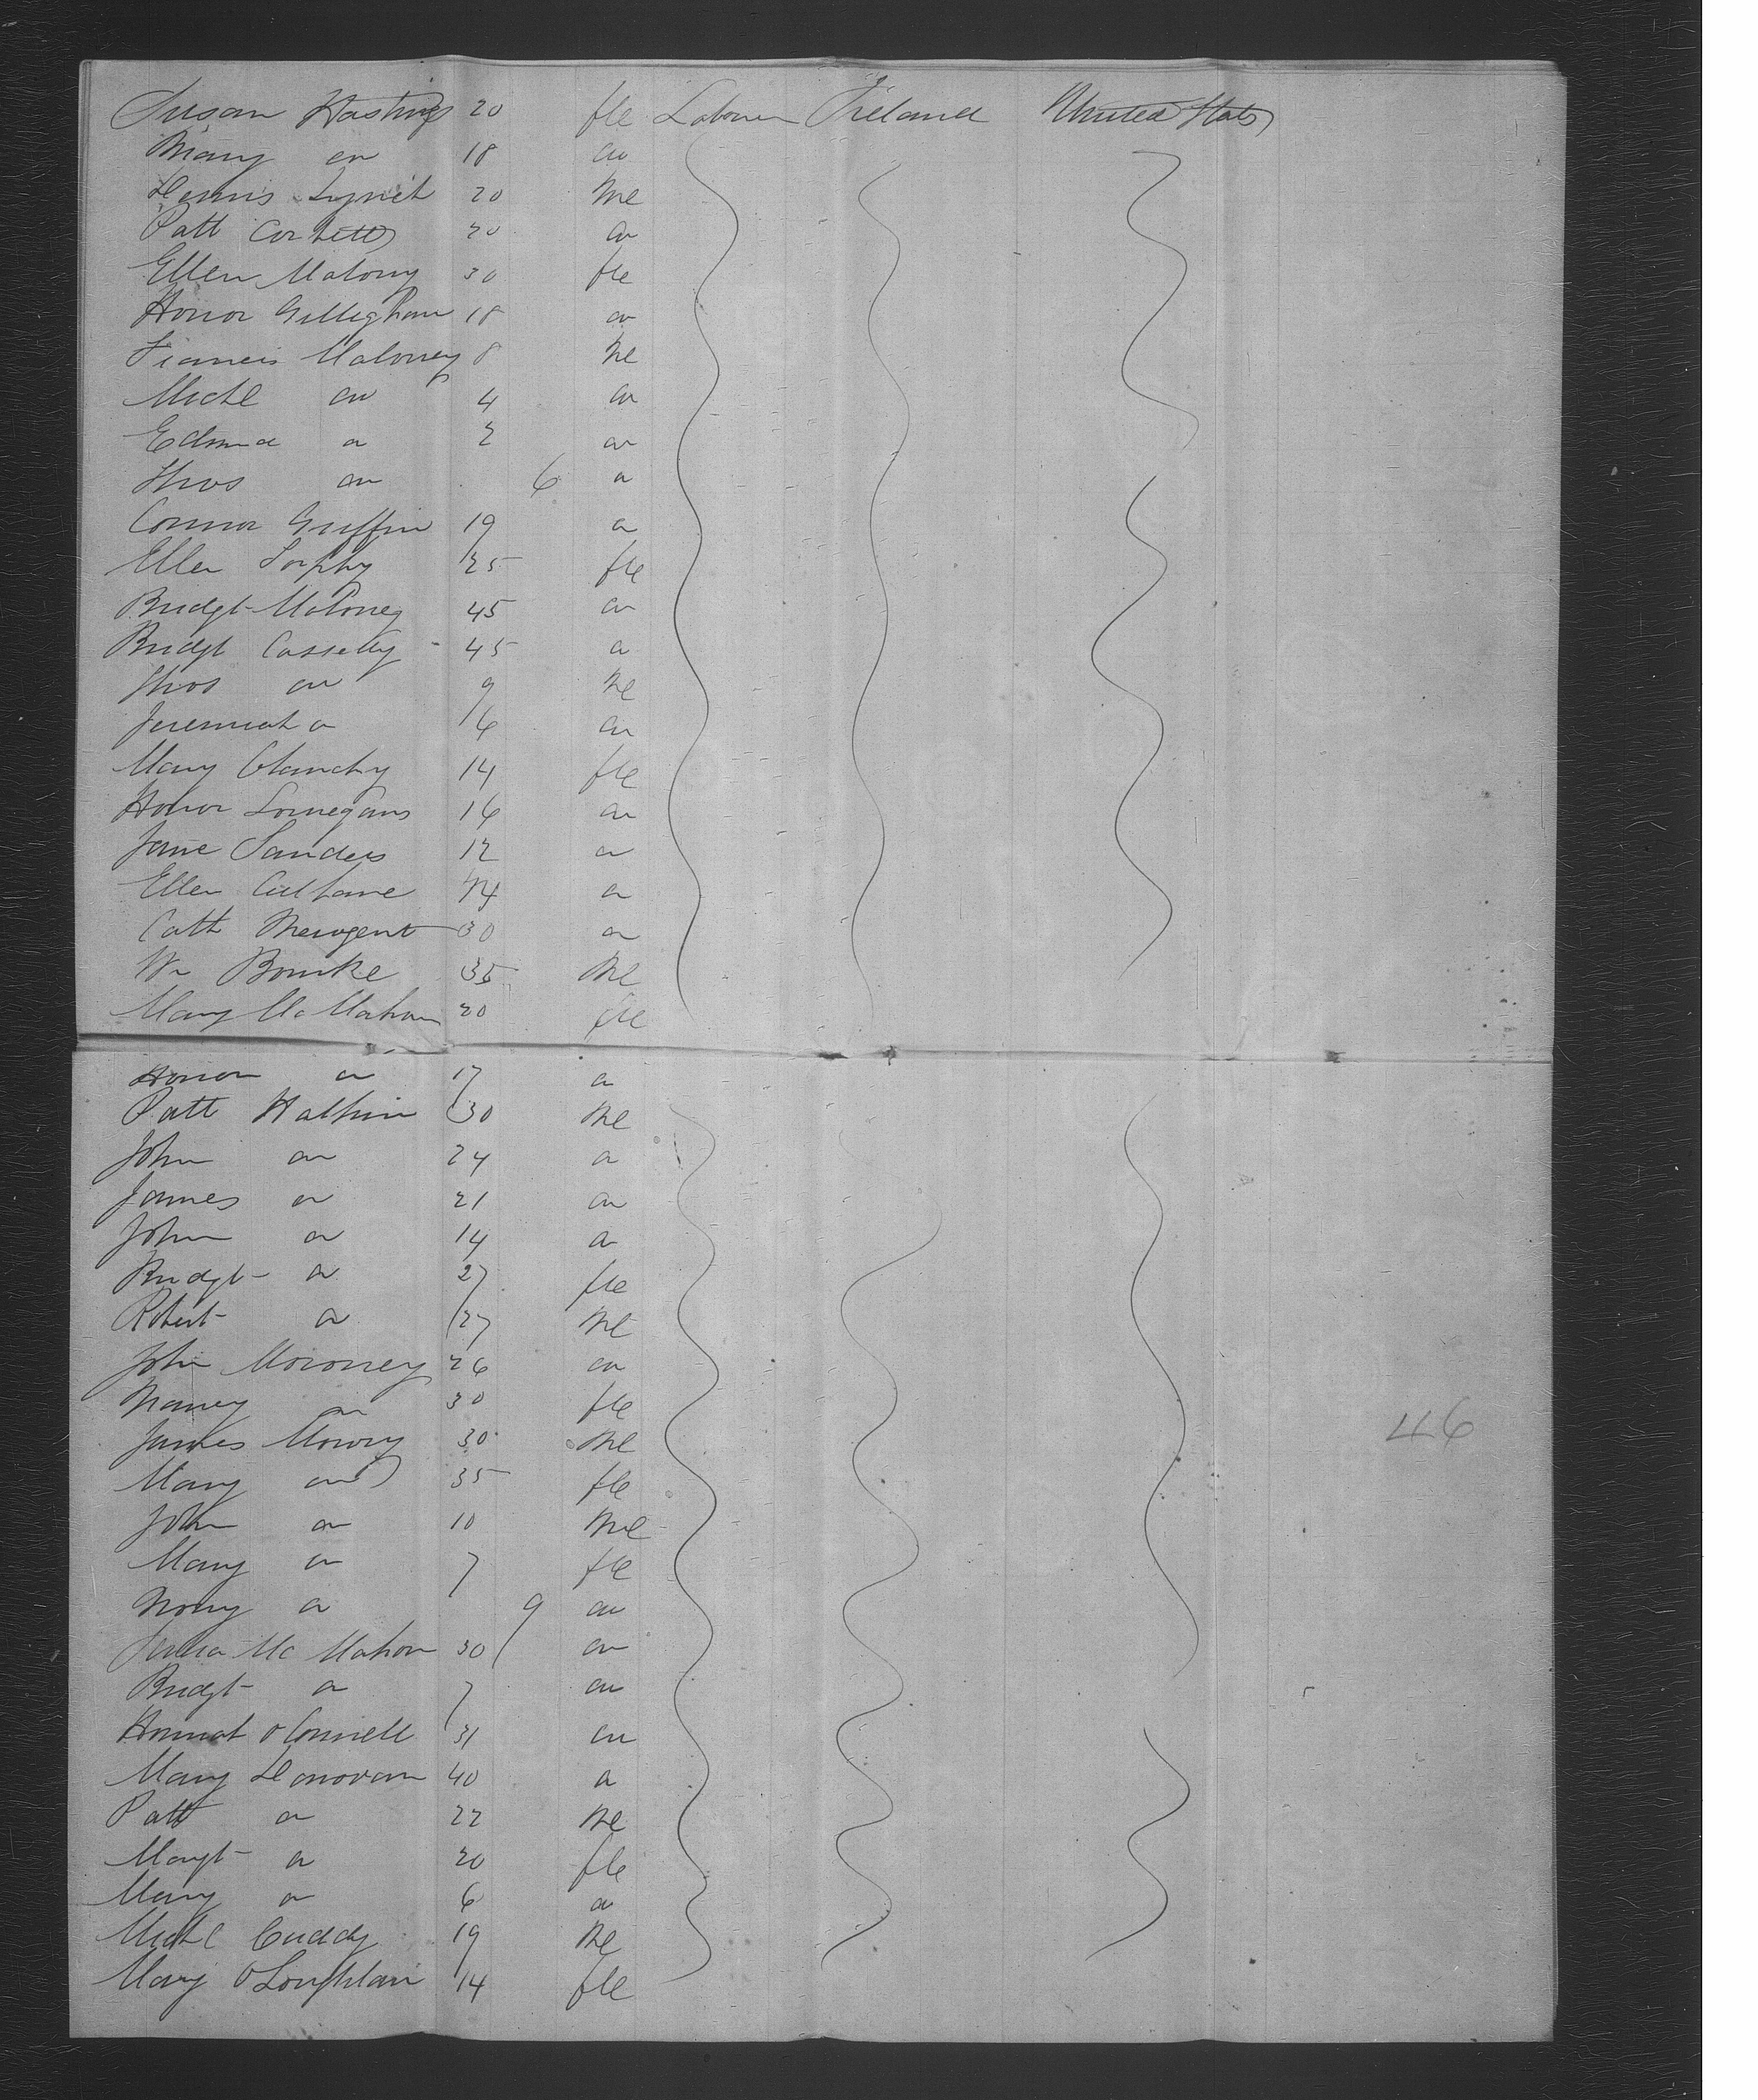 Susan Hastings 20 fle Labourer Ireland United States
Mary do 18 do
Dennis Lynch 20 Me
Patt Corbett 20 do
Ellen Malony 30 fle
Honor Gilleghan 18 do
Francis Maloney 8 Me
Michl do 4 do
Edmund do 2 do
Thos do 6 do
Connor Griffin 19 do
Ellen Torphy 25 fle
Bridgt Maloney 45 do
Bridgt Casselly 45 do
Thos do 9 Me
Jeremiah do 6 do
Mary Clanchy 14 fle
Honor Lonnegans 16 do
Jane Sanders 12 do
Ellen Culhane 14 do
Cath 30 do
Wm Bourke 35 Me
Mary McMahon 20 fle
Honor do 17 do
Patt Halpin 30 Me
John do 24 do
James do 21 do
John do 14 do
Bridgt do 27 fle
Robert do 27 Me
John Moroney 26 do
Nancy do 30 fle
James Morony 30 Me
46
Mary do 35 fle
John do 10 Me
Mary do 7 fle
Nony do 9 do
McMahon 30 do
Bridgt do 7 do
Hannah O'Connell 31 do
Mary Donovan 40 do
Patt do 22 Me
Margt do 20 fle
Mary do 6 do
Michl Cuddy 19 Me
Mary O'Loughlan 14 fle